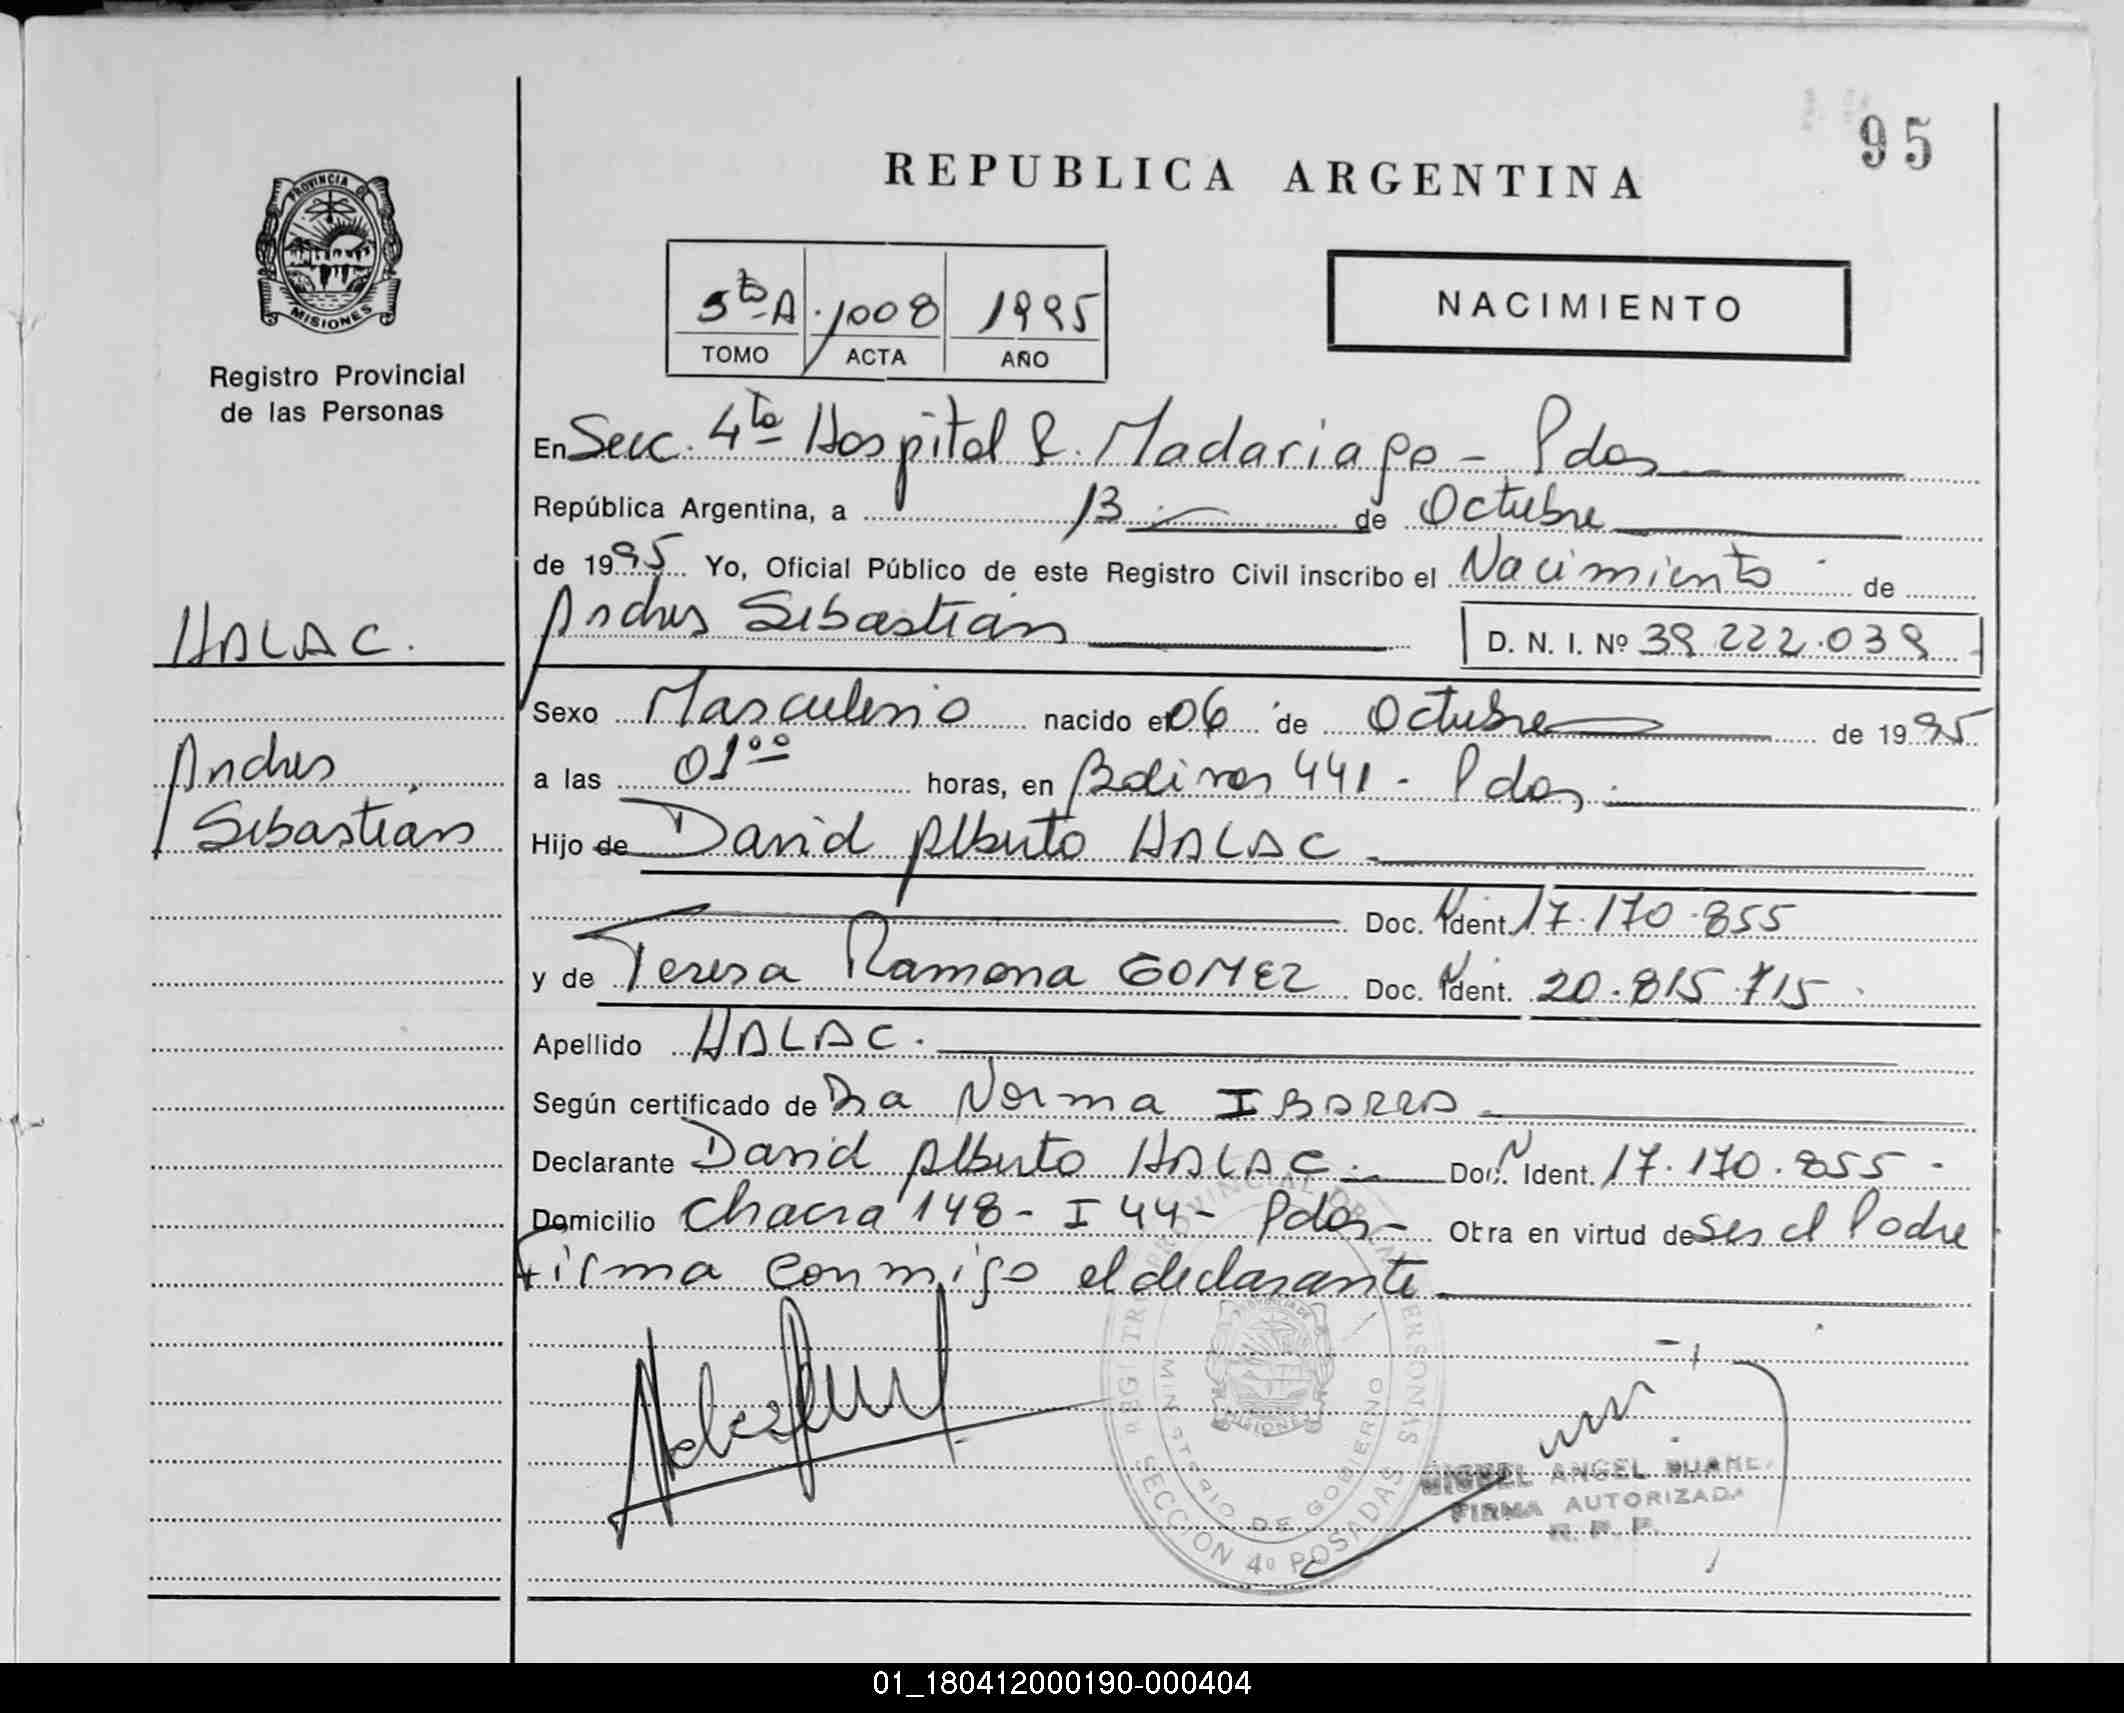 95
REPUBLICA ARGENTINA
PROVINCIA DE
MISIONES
Registro Provincial
de las Personas
5to A 1008 1995
TOMO ACTA AÑO
NACIMIENTO
En Secc. 4ta Hospital R. Madariaga - Pdas
República Argentina, a 13 de Octubre
de 1995 Yo, Oficial Público de este Registro Civil inscribo el Nacimiento de
Andres Sebastián D. N. I. Nº 39.222.039
HALAC.
Sexo Masculino nacido el 06 de Octubre de 1995
Andres
a las 01°° horas, en Bolivar 441 - Pdas.
Sebastián
Hijo de David Alberto HALAC
Doc. Ident. 17.170.855
y de Teresa Ramona GOMEZ Doc. Ident. 20.815.715
Apellido HALAC.
Según certificado de Dra Norma IBARRA
Declarante David Alberto HALAC. Doc. Ident. 17.170.855 -
Domicilio Chacra 148 - I 44 - Pdas - Otra en virtud de ser el Padre
Firma conmigo el declarante
REGISTRO PROVINCIAL DE LAS PERSONAS
MINISTERIO DE GOBIERNO
MISIONES
SECCION 4º POSADAS
MIGUEL ANGEL
FIRMA AUTORIZADA
R. P. P.
01_180412000190-000404